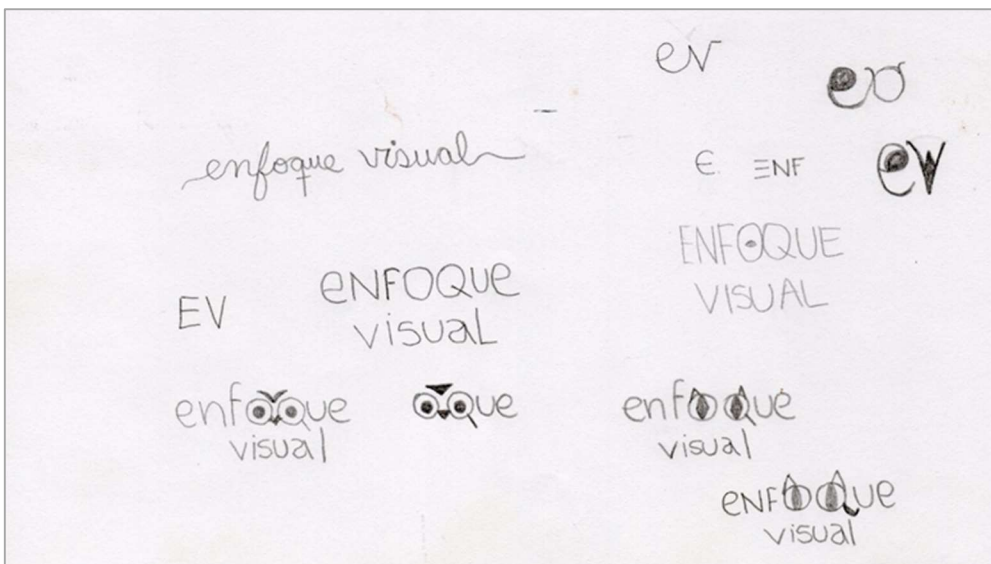 ev
ev
enfoque visual
E. ENF
ev
ENFOQUE
VISUAL
EV
eNFOQUe
visuaL
enfoque
visual
oque
enfoque
visual
eNFOQUe
visual